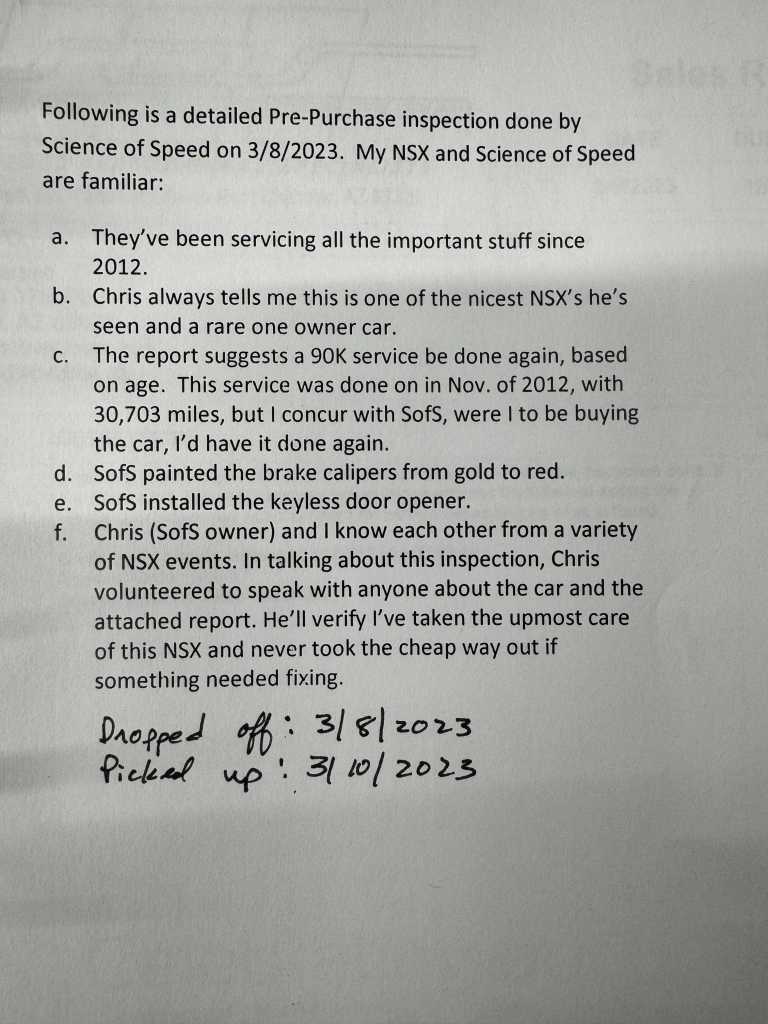 Following is a detailed Pre-Purchase inspection done by
Science of Speed on 3/8/2023. My NSX and Science of Speed
are familiar:
a. They've been servicing all the important stuff since
2012.
b. Chris always tells me this is one of the nicest NSX's he's
seen and a rare one owner car.
c. The report suggests a 90K service be done again, based
on age. This service was done on in Nov. of 2012, with
30,703 miles, but I concur with SofS, were I to be buying
the car, I'd have it done again.
d. SofS painted the brake calipers from gold to red.
e. SofS installed the keyless door opener.
f. Chris (SofS owner) and I know each other from a variety
of NSX events. In talking about this inspection, Chris
volunteered to speak with anyone about the car and the
attached report. He'll verify I've taken the upmost care
of this NSX and never took the cheap way out if
something needed fixing.
Dropped off: 3/8/2023
Picked up: 3/10/2023